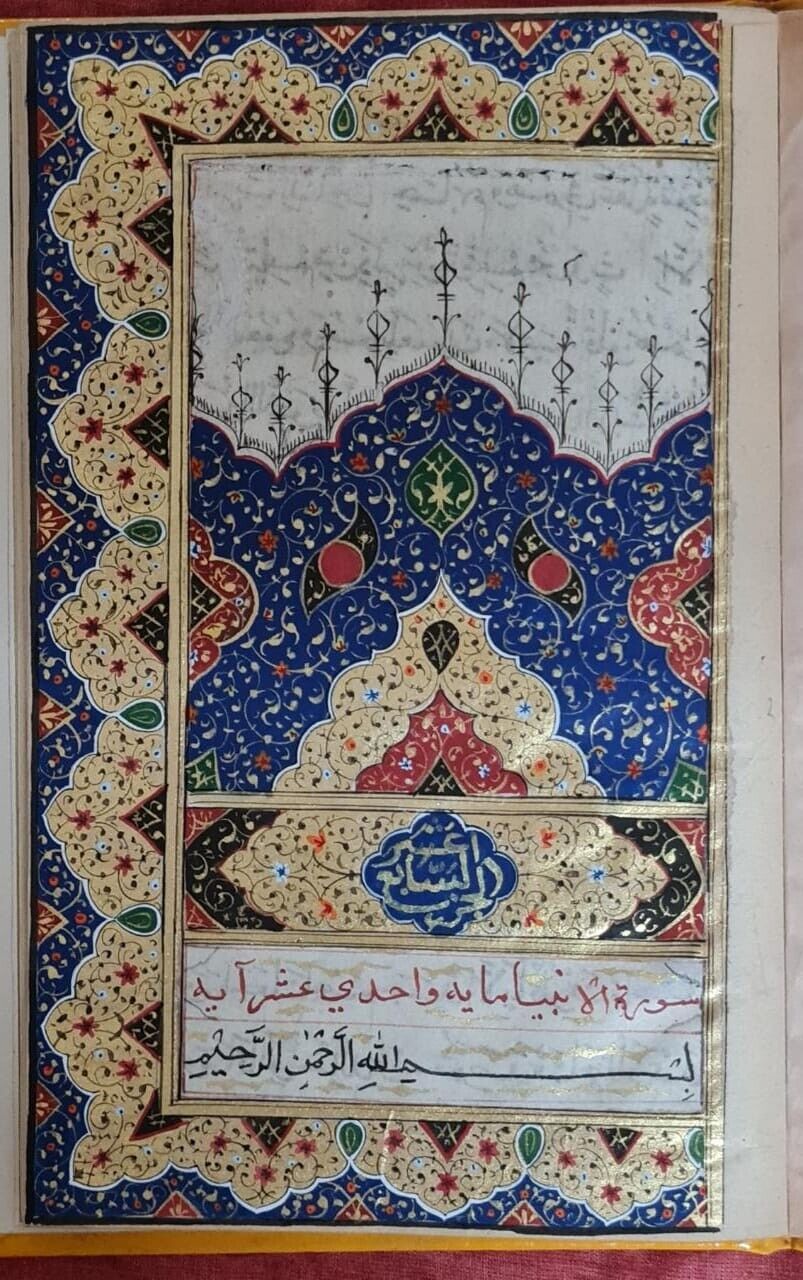 الجزء
السابع
عشر
سورة الانبيا مايه واحدي عشر آيه
بِسْمِ اللهِ الرَّحْمٰنِ الرَّحِيْمِ